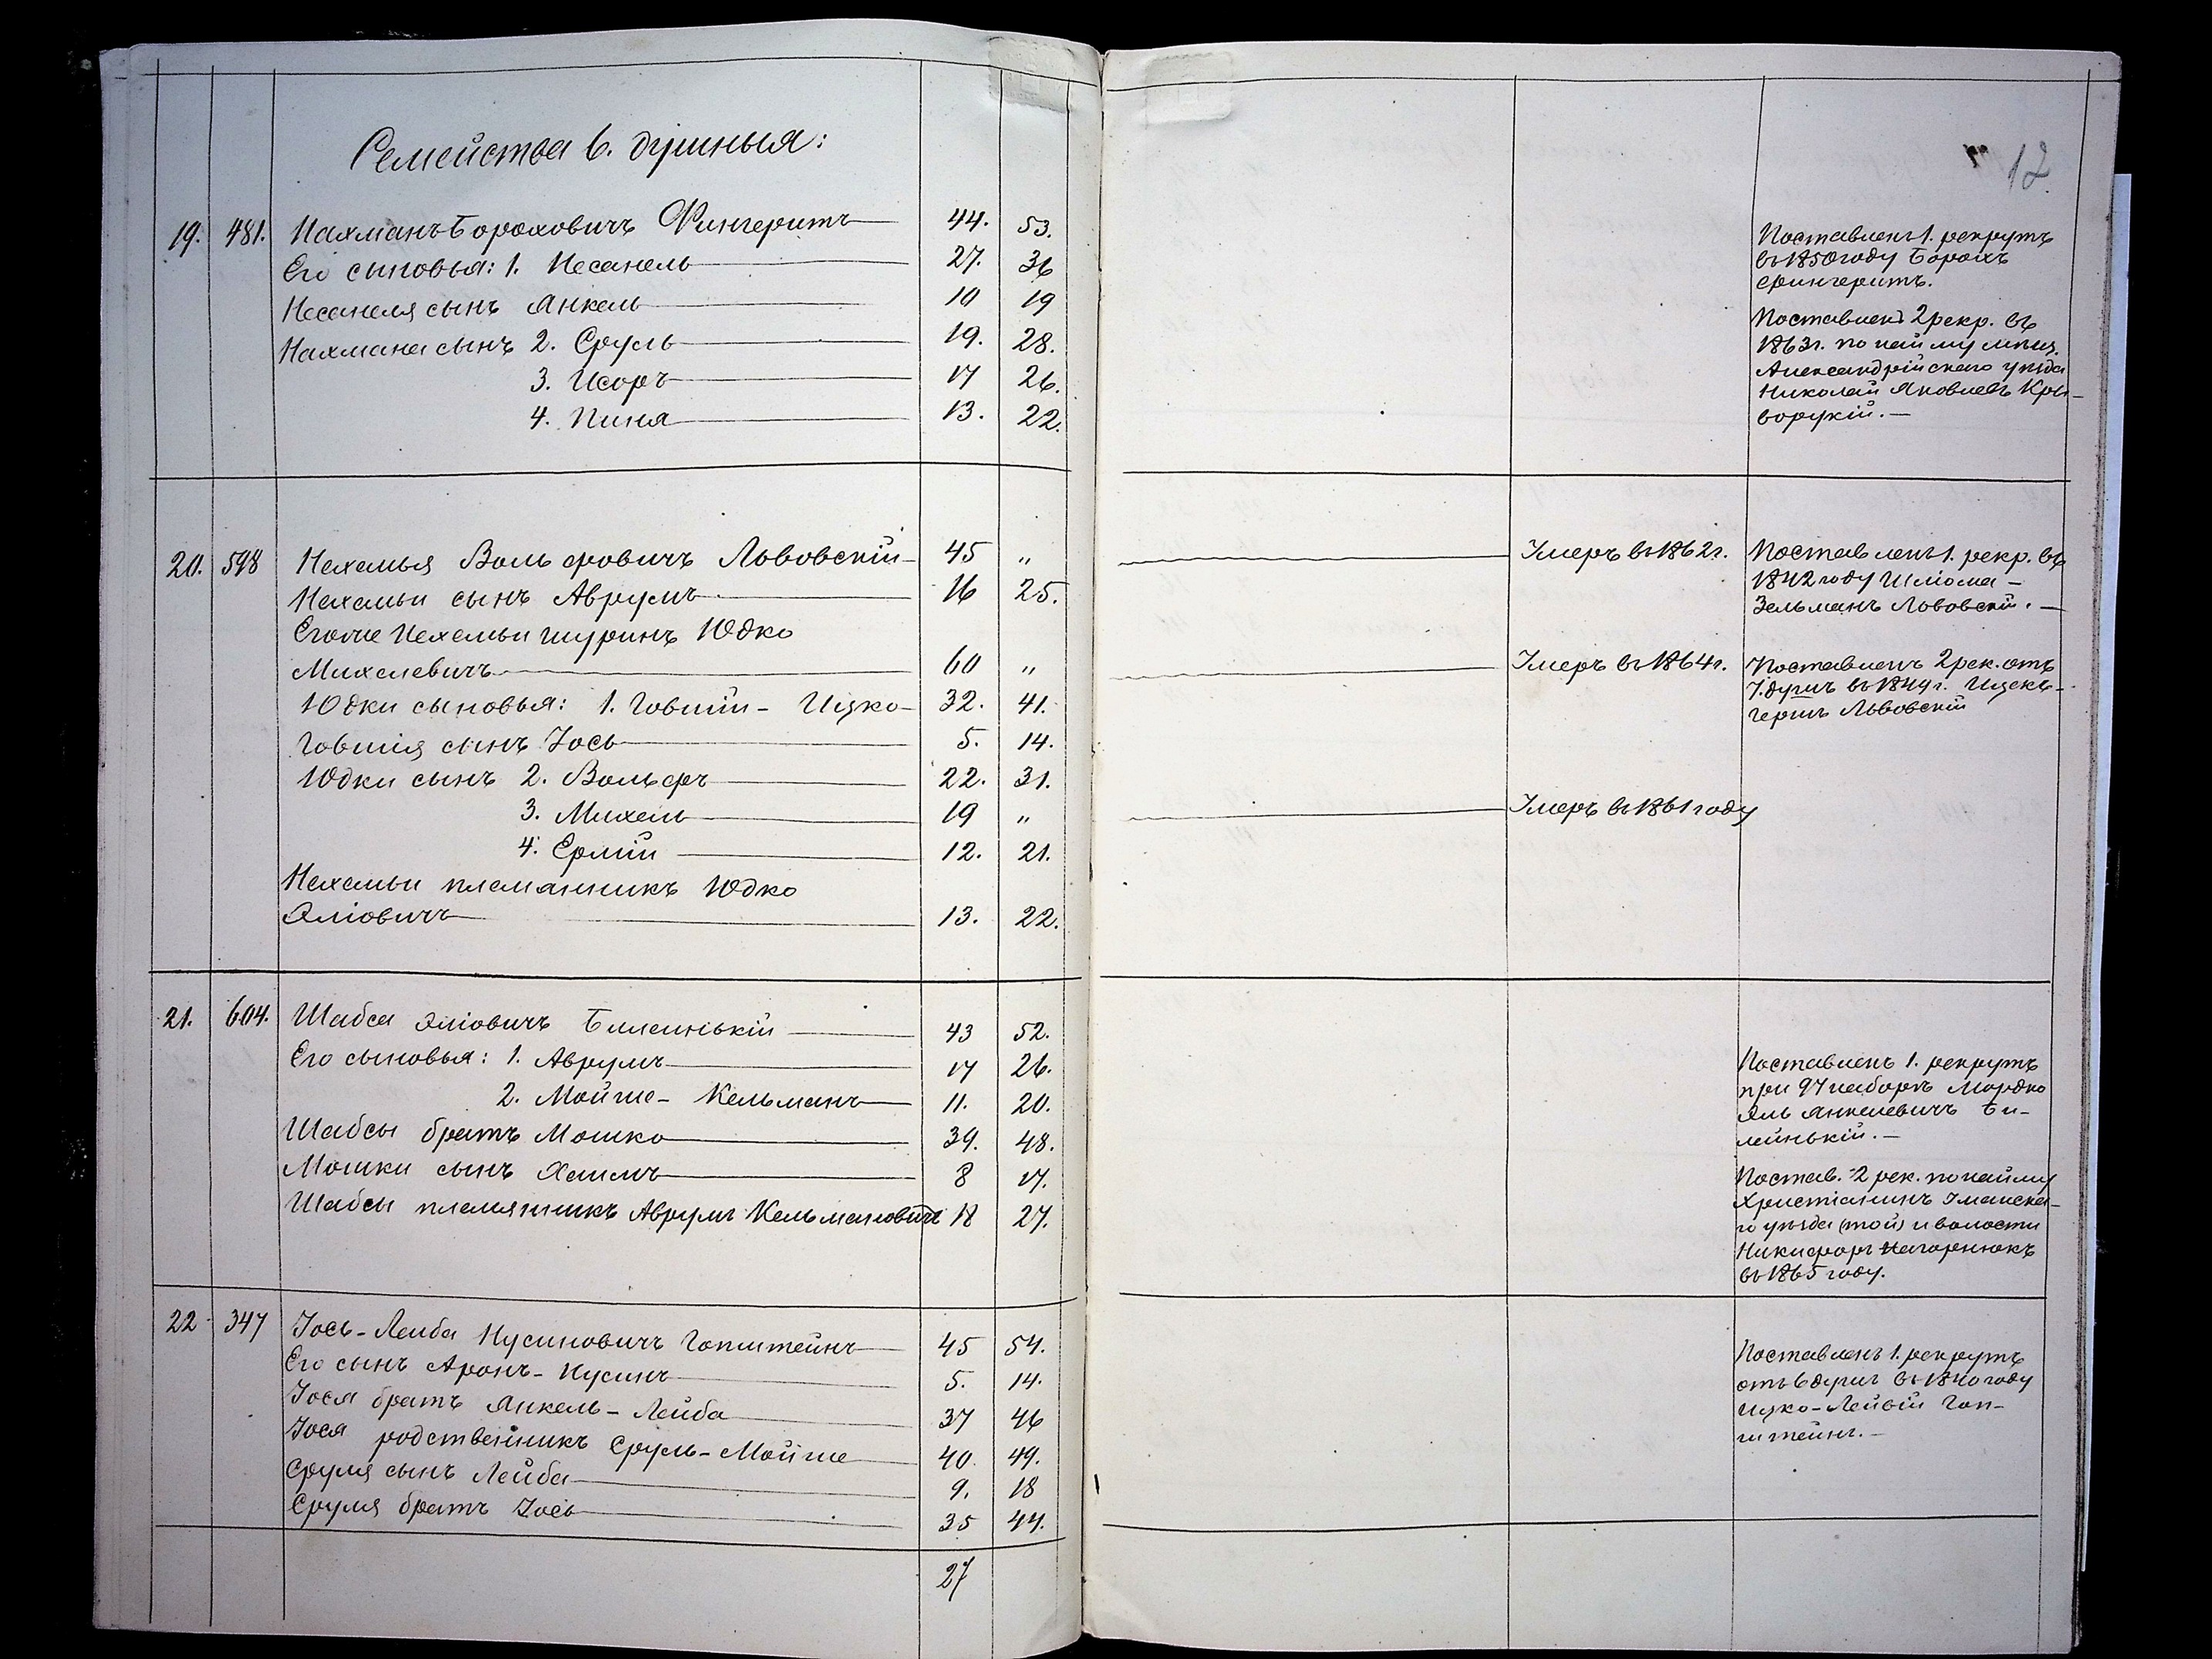 Семейства 6. душныя:
12.
19. 481. Нахманъ Бороховичъ Фингеритъ 44. 53.
Его сыновья: 1. Несанель 27. 36
Несанеля сынъ Янкель 10 19
Нахмана сынъ 2. Сруль 19. 28.
3. Исоръ 17 26.
4. Пиня 13. 22.
Поставленъ 1. рекрутъ
въ 1850 году Борохъ
Фингеритъ.
Поставленъ 2 рекр. въ
1863г. по найму мѣщ.
Александрійскаго уѣзда
Николай Яковлевъ Кри-
ворукій.—
20. 598 Нехемья Вольфовичъ Львовскій 45 "
Нехемьи сынъ Аврумъ 16 25.
Егоже Нехемьи шуринъ Юдко
Михелевичъ 60 "
Юдки сыновья: 1. Говшій - Ицко 32. 41.
Говшія сынъ Іось 5. 14.
Юдки сынъ 2. Вольфъ 22. 31.
3. Михель 19 "
4. Ермій 12. 21.
Нехемьи племянникъ Юдко
Эліовичъ 13. 22.
Умеръ въ 1862г.
Умеръ въ 1864г.
Умеръ въ 1861 году
Поставленъ 1. рекр. въ
1842 году Шліома -
Зельманъ Львовскій. —
Поставленъ 2 рек. отъ
7. душъ въ 1849г. Ицекъ -
Гершъ Львовскій
21. 604. Шабса Эліовичъ Билинькій 43 52.
Его сыновья: 1. Аврумъ 17 26.
2. Мойше - Кельманъ 11. 20.
Шабсы братъ Мошко 39. 48.
Мошки сынъ Хаимъ 8 17.
Шабсы племянникъ Аврумъ Кельмановичъ 18 27.
Поставленъ 1. рекрутъ
при 97 наборѣ Мордко
Эль Янкелевичъ Би-
линькій. —
Постав. 2 рек. по найму
Христіанинъ Уманска-
го уѣзда (той) и волости
Никифоръ Нагорнюкъ
въ 1865 году.
22. 347 Іось - Лейба Нусиновичъ Гопштейнъ 45 54.
Его сынъ Аронъ - Нусинъ 5. 14.
Іося братъ Янкель - Лейба 37 46
Іося родственникъ Сруль - Мойше 40. 49.
Сруля сынъ Лейба 9. 18
Сруля братъ Іось 35 44.
27
Поставленъ 1. рекрутъ
отъ 6 душъ въ 1840 году
Ицко - Лейбій Гоп-
штейнъ. —